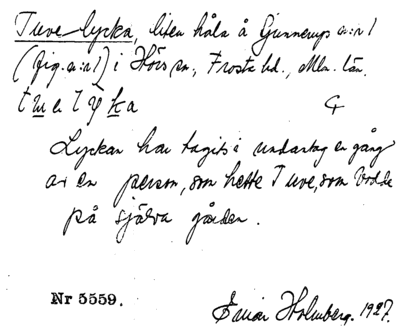 Tuve lycka, liten håla å Gunnerups a: nr 1
(fig. a: nr 1) i Hörs sn, Frosta hd., Mlm. län.
Lyckan har tagits i undantag en gång
av en person, som hette Tuve, som bodde
på själva gården.
Nr 5559.
Einar Holmberg. 1927.